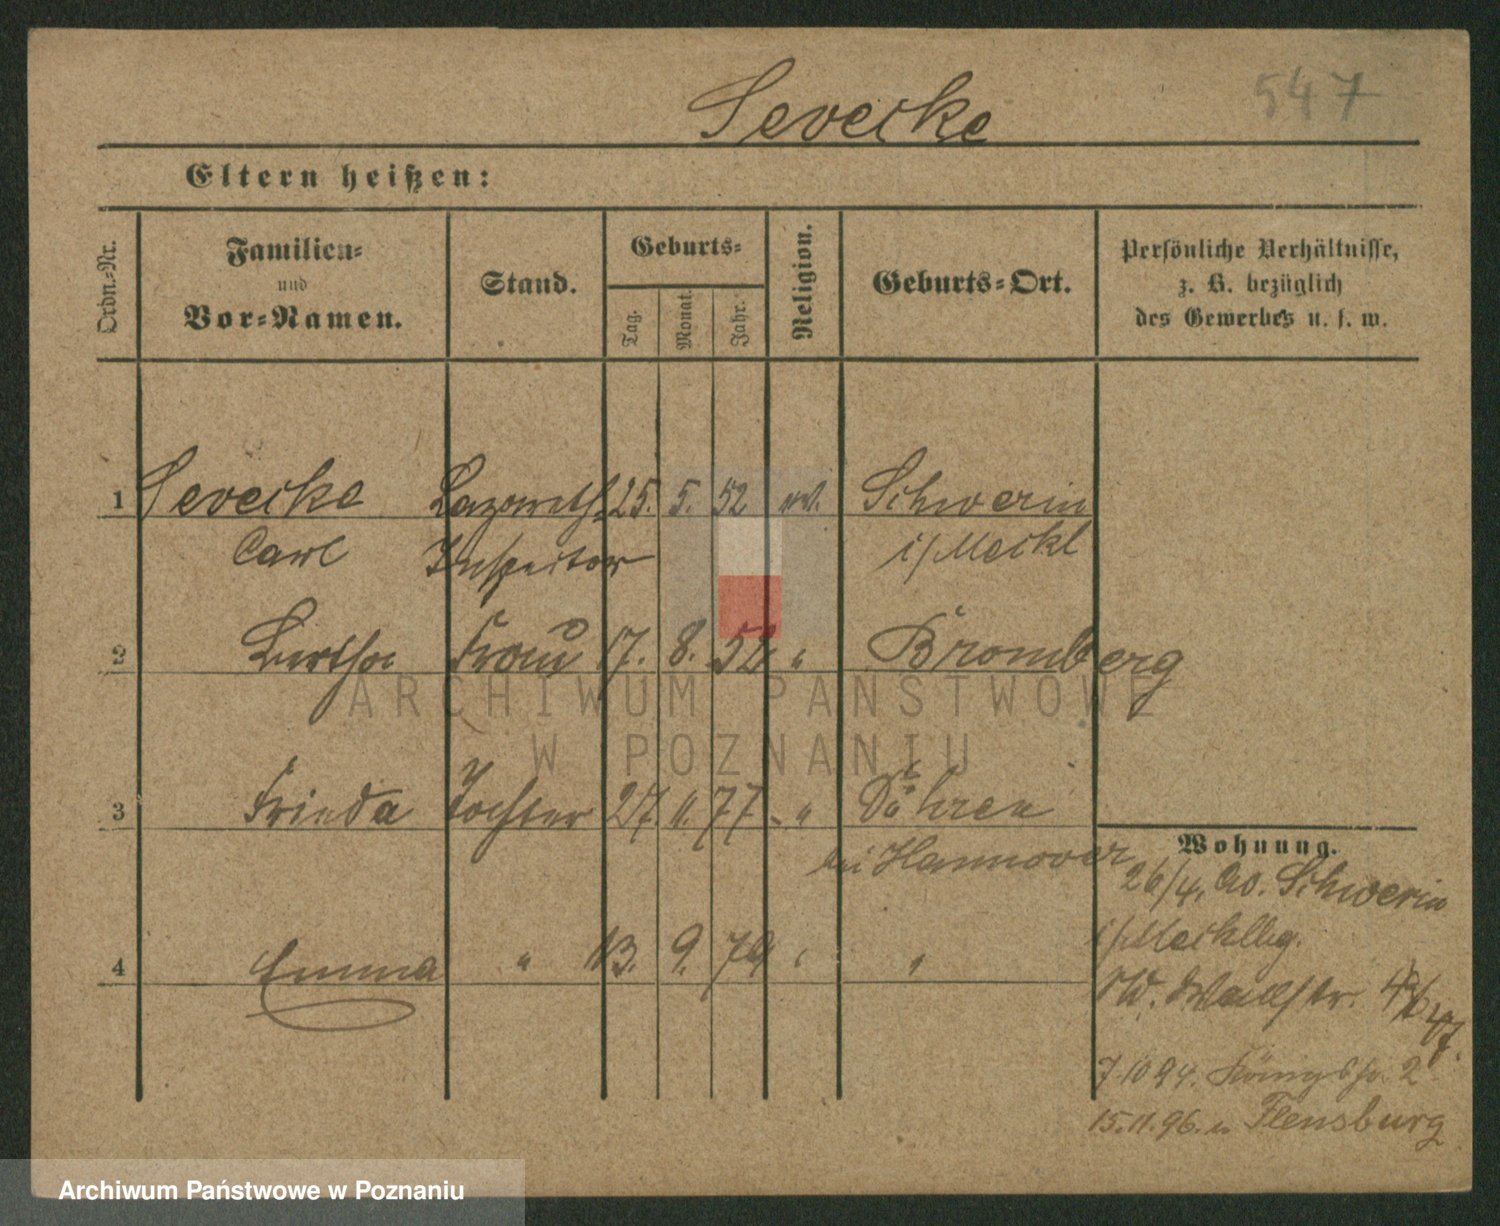 Sevecke
547
Eltern heißen:
Ordn.-Nr.
Familien-
und
Vor-Namen.
Stand.
Geburts-
Tag.
Monat.
Jahr.
Religion.
Geburts-Ort.
Persönliche Verhältnisse,
z. B. bezüglich
des Gewerbes u. s. w.
1 Sevecke Lazareth- 25. 5. 52 ev. Schwerin
Carl Inspector i/Meckl
2 Bertha Frau 17. 8. 52 " Bromberg
3 Frieda Tochter 27. 11. 77 " Döhren
bei Hannover
4 Emma " 13. 9. 79 " "
Wohnung.
26/4. 90. Schwerin
i/Mecklbg.
Wallstr.
7.10.94. Königstr. 2
15.11.96. n. Flensburg
ARCHIWUM PAŃSTWOWE
W POZNANIU
Archiwum Państwowe w Poznaniu